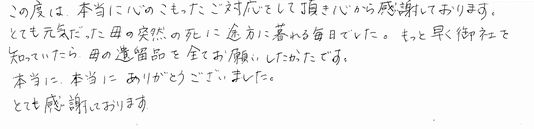 この度は、本当に心のこもったご対応をして頂き心から感謝しております。
とても元気だった母の突然の死に途方に暮れる毎日でした。もっと早く御社を
知っていたら、母の遺留品を全てお願いしたかったです。
本当に、本当にありがとうございました。
とても感謝しております